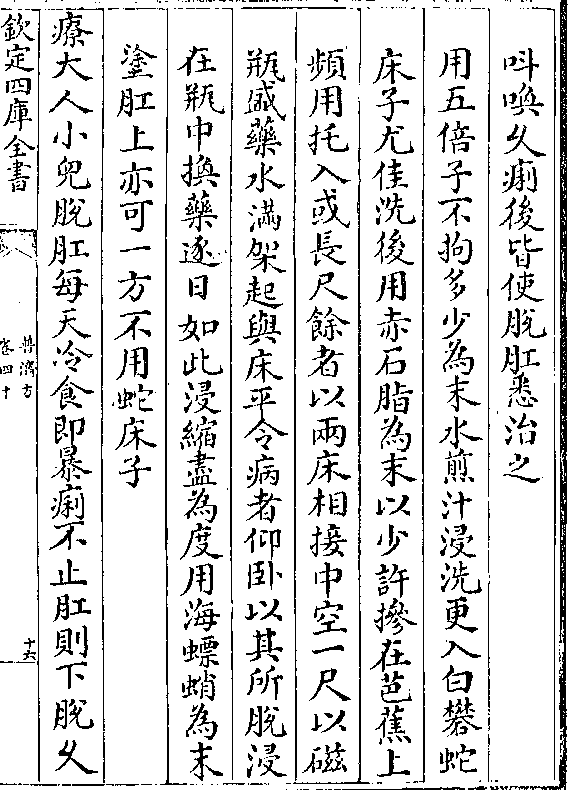 呌喚久痢後皆使脫肛悉治之
用五倍子不拘多少為末水煎汁浸洗更入白礬蛇
床子尤佳洗後用赤石脂為末以少許摻在芭蕉上
頻用托入或長尺餘者以兩床相接中空一尺以磁
瓶盛藥水滿架起與床平令病者仰卧以其所脫浸
在瓶中換藥逐日如此浸縮盡為度用海螵蛸為末
塗肛上亦可一方不用蛇床子
療大人小兒脫肛每天冷食即暴痢不止肛則下脫久
欽定四庫全書
普濟方
卷四十
十六